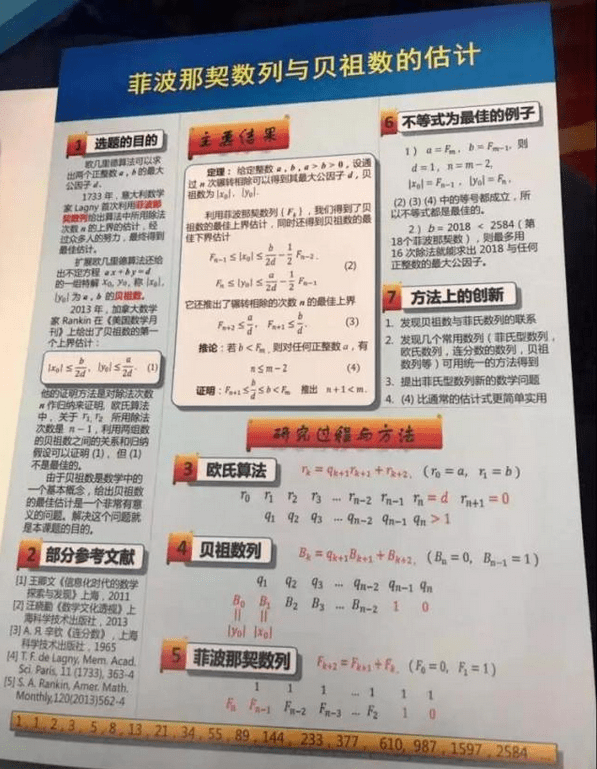 菲波那契数列与贝祖数的估计
1 选题的目的
欧几里德算法可以求
出两个正整数 a , b 的最大
公因子 d.
1733 年，意大利数学
家 Lagny 首次利用菲波那
契数列给出算法中所用除法
次数 n 的上界的估计，经
过众多人的努力，最终得到
最佳估计。
扩展欧几里德算法还给
出不定方程 ax + by = d
的一组特解 x₀, y₀, 称 |x₀|,
|y₀| 为 a, b 的贝祖数。
2013 年，加拿大数学
家 Rankin 在《美国数学月
刊》上给出了贝祖数的第一
个上界估计：
|x₀| ≤ b/2d, |y₀| ≤ a/2d. (1)
他的证明方法是对除法次数
n 作归纳来证明, 欧氏算法
中，关于 r₁, r₂ 所用除法
次数是 n − 1 , 利用两组数
的贝祖数之间的关系和归纳
假设可以证明 (1) 、但 (1)
不是最佳的。
由于贝祖数是数学中的
一个基本概念，给出贝祖数
的最佳估计是一个非常有意
义的问题。解决这个问题就
是本课题的目的。
2 部分参考文献
[1] 王卿文《信息化时代的数学
探索与发现》上海，2011
[2] 汪晓勤《数学文化透视》上
海科学技术出版社，2013
[3] А. Я. 辛钦《连分数》，上海
科学技术出版社，1965
[4] T. F. de Lagny, Mem. Acad.
Sci. Paris, 11 (1733), 363-4
[5] S. A. Rankin, Amer. Math.
Monthly,120(2013)562-4
主要结果
定理：给定整数 a , b , a > b > 0 , 设通
过 n 次辗转相除可以得到其最大公因子 d , 贝
祖数为 |x₀|, |y₀|.
利用菲波那契数列 { Fₖ } , 我们得到了贝
祖数的最佳上界估计，同时还得到贝祖数的最
佳下界估计
Fₙ₋₁ ≤ |x₀| ≤ b/2d − 1/2 Fₙ₋₂.
(2)
Fₙ ≤ |y₀| ≤ a/2d − 1/2 Fₙ₋₁
它还推出了辗转相除的次数 n 的最佳上界
Fₙ₊₂ ≤ a/d, Fₙ₊₁ ≤ b/d. (3)
推论：若 b < Fₘ , 则对任何正整数 a , 有
n ≤ m − 2 (4)
证明：Fₙ₊₁ ≤ b/d ≤ b < Fₘ 推出 n + 1 < m.
6 不等式为最佳的例子
1 ) a = Fₘ , b = Fₘ₋₁, 则
d = 1, n = m − 2,
|x₀| = Fₙ₋₁ , |y₀| = Fₙ ,
(2) (3) (4) 中的等号都成立，所
以不等式都是最佳的。
2 ) b = 2018 < 2584 ( 第
18个菲波那契数 ) , 则最多用
16 次除法就能求出 2018 与任何
正整数的最大公因子。
7 方法上的创新
1. 发现贝祖数与菲氏数列的联系
2. 发现几个常用数列（菲氏型数列，
欧氏数列，连分数的数列，贝祖
数列等）可用统一的方法得到
3. 提出菲氏型数列新的数学问题
4. (4) 比通常的估计式更简单实用
研究过程与方法
3 欧氏算法 rₖ = qₖ₊₁rₖ₊₁ + rₖ₊₂, ( r₀ = a, r₁ = b )
r₀ r₁ r₂ r₃ ... rₙ₋₂ rₙ₋₁ rₙ = d rₙ₊₁ = 0
q₁ q₂ q₃ ... qₙ₋₂ qₙ₋₁ qₙ > 1
4 贝祖数列 Bₖ = qₖ₊₁Bₖ₊₁ + Bₖ₊₂, ( Bₙ = 0, Bₙ₋₁ = 1 )
q₁ q₂ q₃ ... qₙ₋₂ qₙ₋₁ qₙ
B₀ B₁ B₂ B₃ ... Bₙ₋₂ 1 0
|| ||
|y₀| |x₀|
5 菲波那契数列 Fₖ₊₂ = Fₖ₊₁ + Fₖ, ( F₀ = 0, F₁ = 1 )
1 1 1 ... 1 1 1
Fₙ Fₙ₋₁ Fₙ₋₂ Fₙ₋₃ ... F₂ 1 0
1 , 1 , 2 , 3 , 5 , 8 , 13 , 21 , 34 , 55 , 89 , 144 , 233 , 377 , 610, 987 , 1597 , 2584 ...